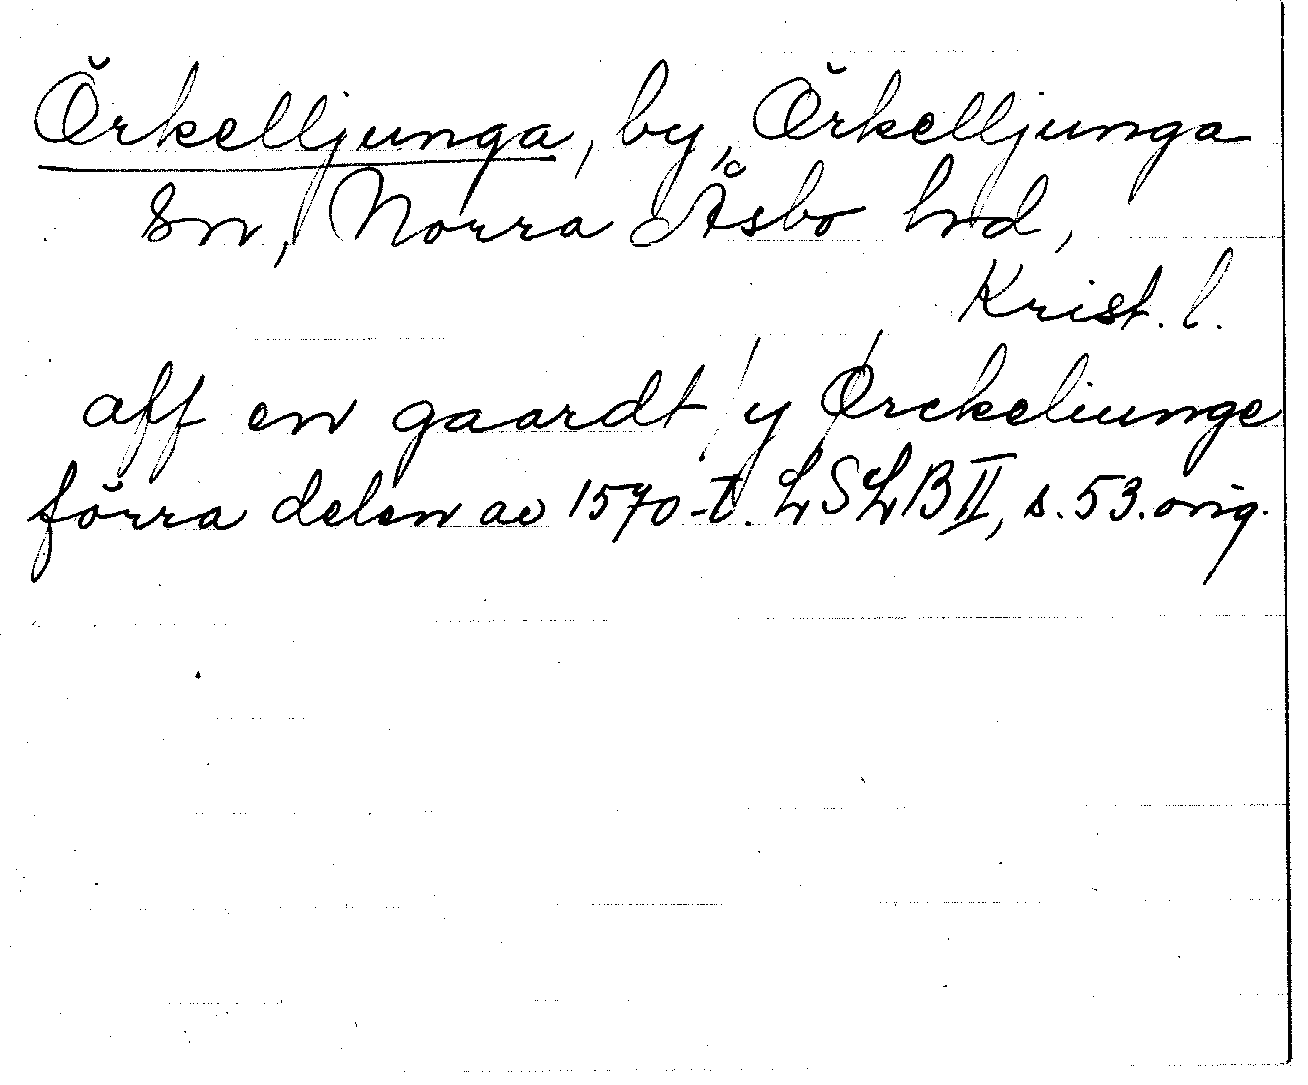 Örkelljunga, by, Örkelljunga
sn, Norra Åsbo hrd,
Krist. l.
aff en gaardt y Ørckeliunge
förra delen av 1570-t. LSLB II, s. 53. orig.